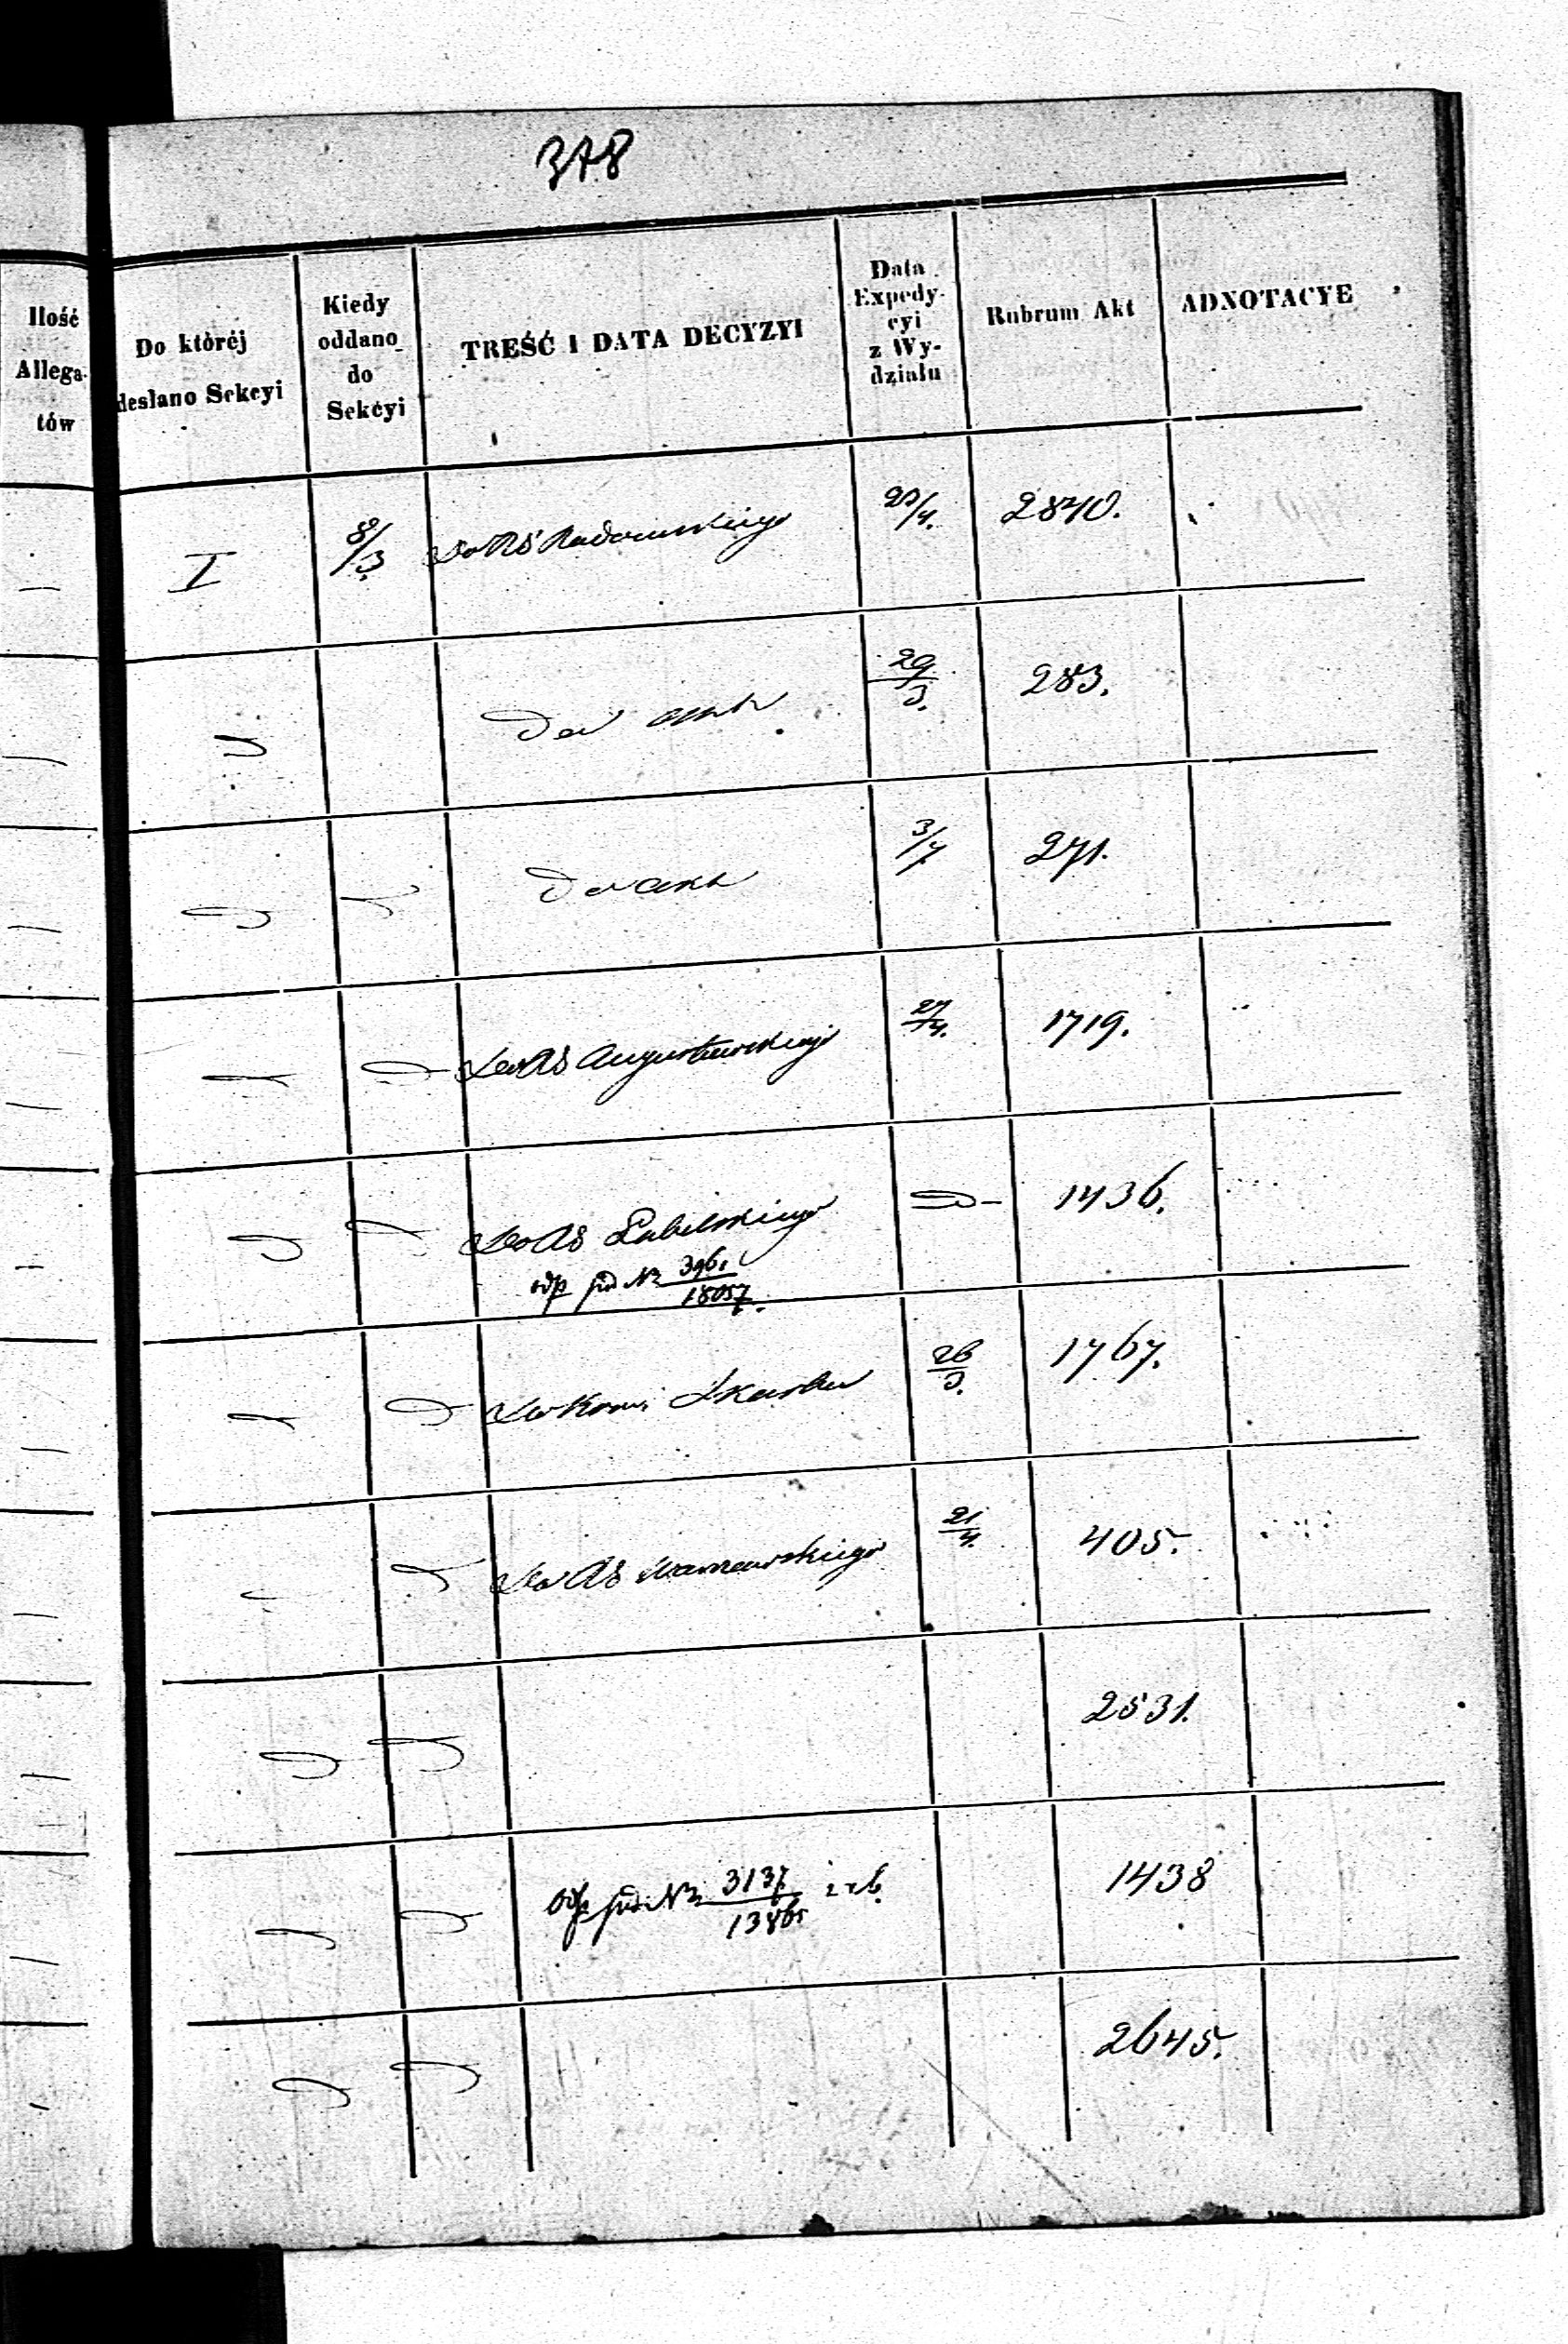 378
Ilość
Allega-
tów
Do któréj
desłano Sekcyi
Kiedy
oddano
do
Sekcyi
TREŚĆ I DATA DECYZYI
Data
Expedy-
cyi
z Wy-
działu
Rubrum Akt
ADNOTACYE
I 8/3 Do RG Radomskiego 2840.
Do akt 29/3. 283.
Do akt 3/4 271.
Do RG Augustowskiego 27/4. 1719.
Do RG Lubelskiego 1436.
odp pod No 18057.
Do Kom Skarbu 26/3. 1767.
Do RG Warszawskiego 21/4. 405.
2531.
odp pod No 3137 1438
2645.